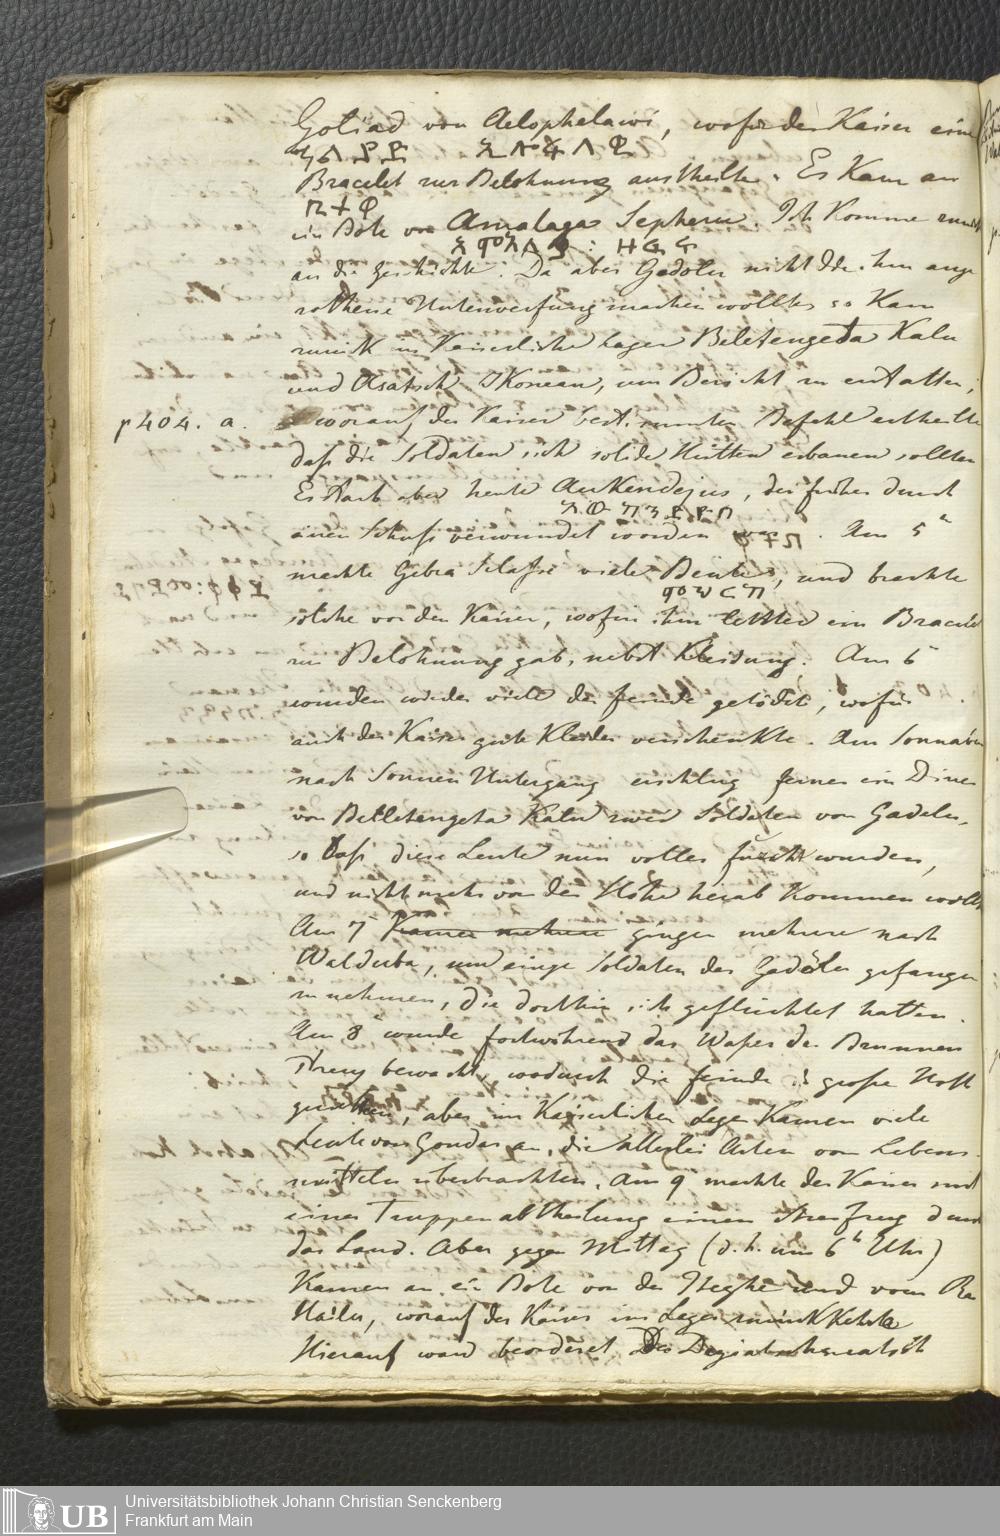 Goliad von Aelophelawi, wofür der Kaiser eine
Bracelet zur Belohnung austheilte. Es kam an
ein Bote von Amalaga Sepherie. Ich komme zurück
an die Geschichte. Da aber Gadolu nicht die ihm ange
rathene Unterwerfung machen wollte, so kam
zurük ins Kaiserliche Lager Beletengeta Kalu
und Asatsch Ikonean, um Bericht zu erstatten,
p 404. a. worauf der Kaiser bestimmten Befehl ertheilte
daß die Soldaten sich solide Hütten erbauen sollten
Es starb aber heute Aukendejus, der früher durch
einen Schuß verwundet worden war. Am 5n
machte Gebra Selasse viele Beute, und brachte
solche vor den Kaiser, wofür ihm letzter ein Bracelet
zur Belohnung gab, nebst Kleidung. Am 6
wurden wieder viele der Feinde getödtet, wofür
auch der Kaiser gute Kleider verschenkte. Am Sonnabend
nach Sonnen Untergang erschlug ferner ein Diner
von Belletengeta Kalu zwei Soldaten von Gadelu,
so daß diese Leute nun voller Furcht wurden,
und nicht mehr von der Höhe herab kommen wollten
Am 7n Kamen mehrere gingen mehrere nach
Walduba, um einige Soldaten des Gadolu gefangen
zu nehmen, die dorthin sich geflüchtet hatten.
Am 8n wurde fortwährend das Waßer der Brunnen
bewacht, wodurch die Feinde in große Noth
geriethen, aber im Kaiserlichen Lager kamen viele
Leute von Gondar an, die allerlei Arten von Lebens
mitteln überbrachten. Am 9n machte der Kaiser mit
einer Truppenabtheilung einen Streifzug durch
das Land. Aber gegen Mittag (d. h. um 6h Uhr)
kamen an ein Bote von der Iteghe und vom Ras
Hailu, worauf der Kaiser ins Lager zurückkehrte
Hierauf ward beordert
Universitätsbibliothek Johann Christian Senckenberg
Frankfurt am Main
UB